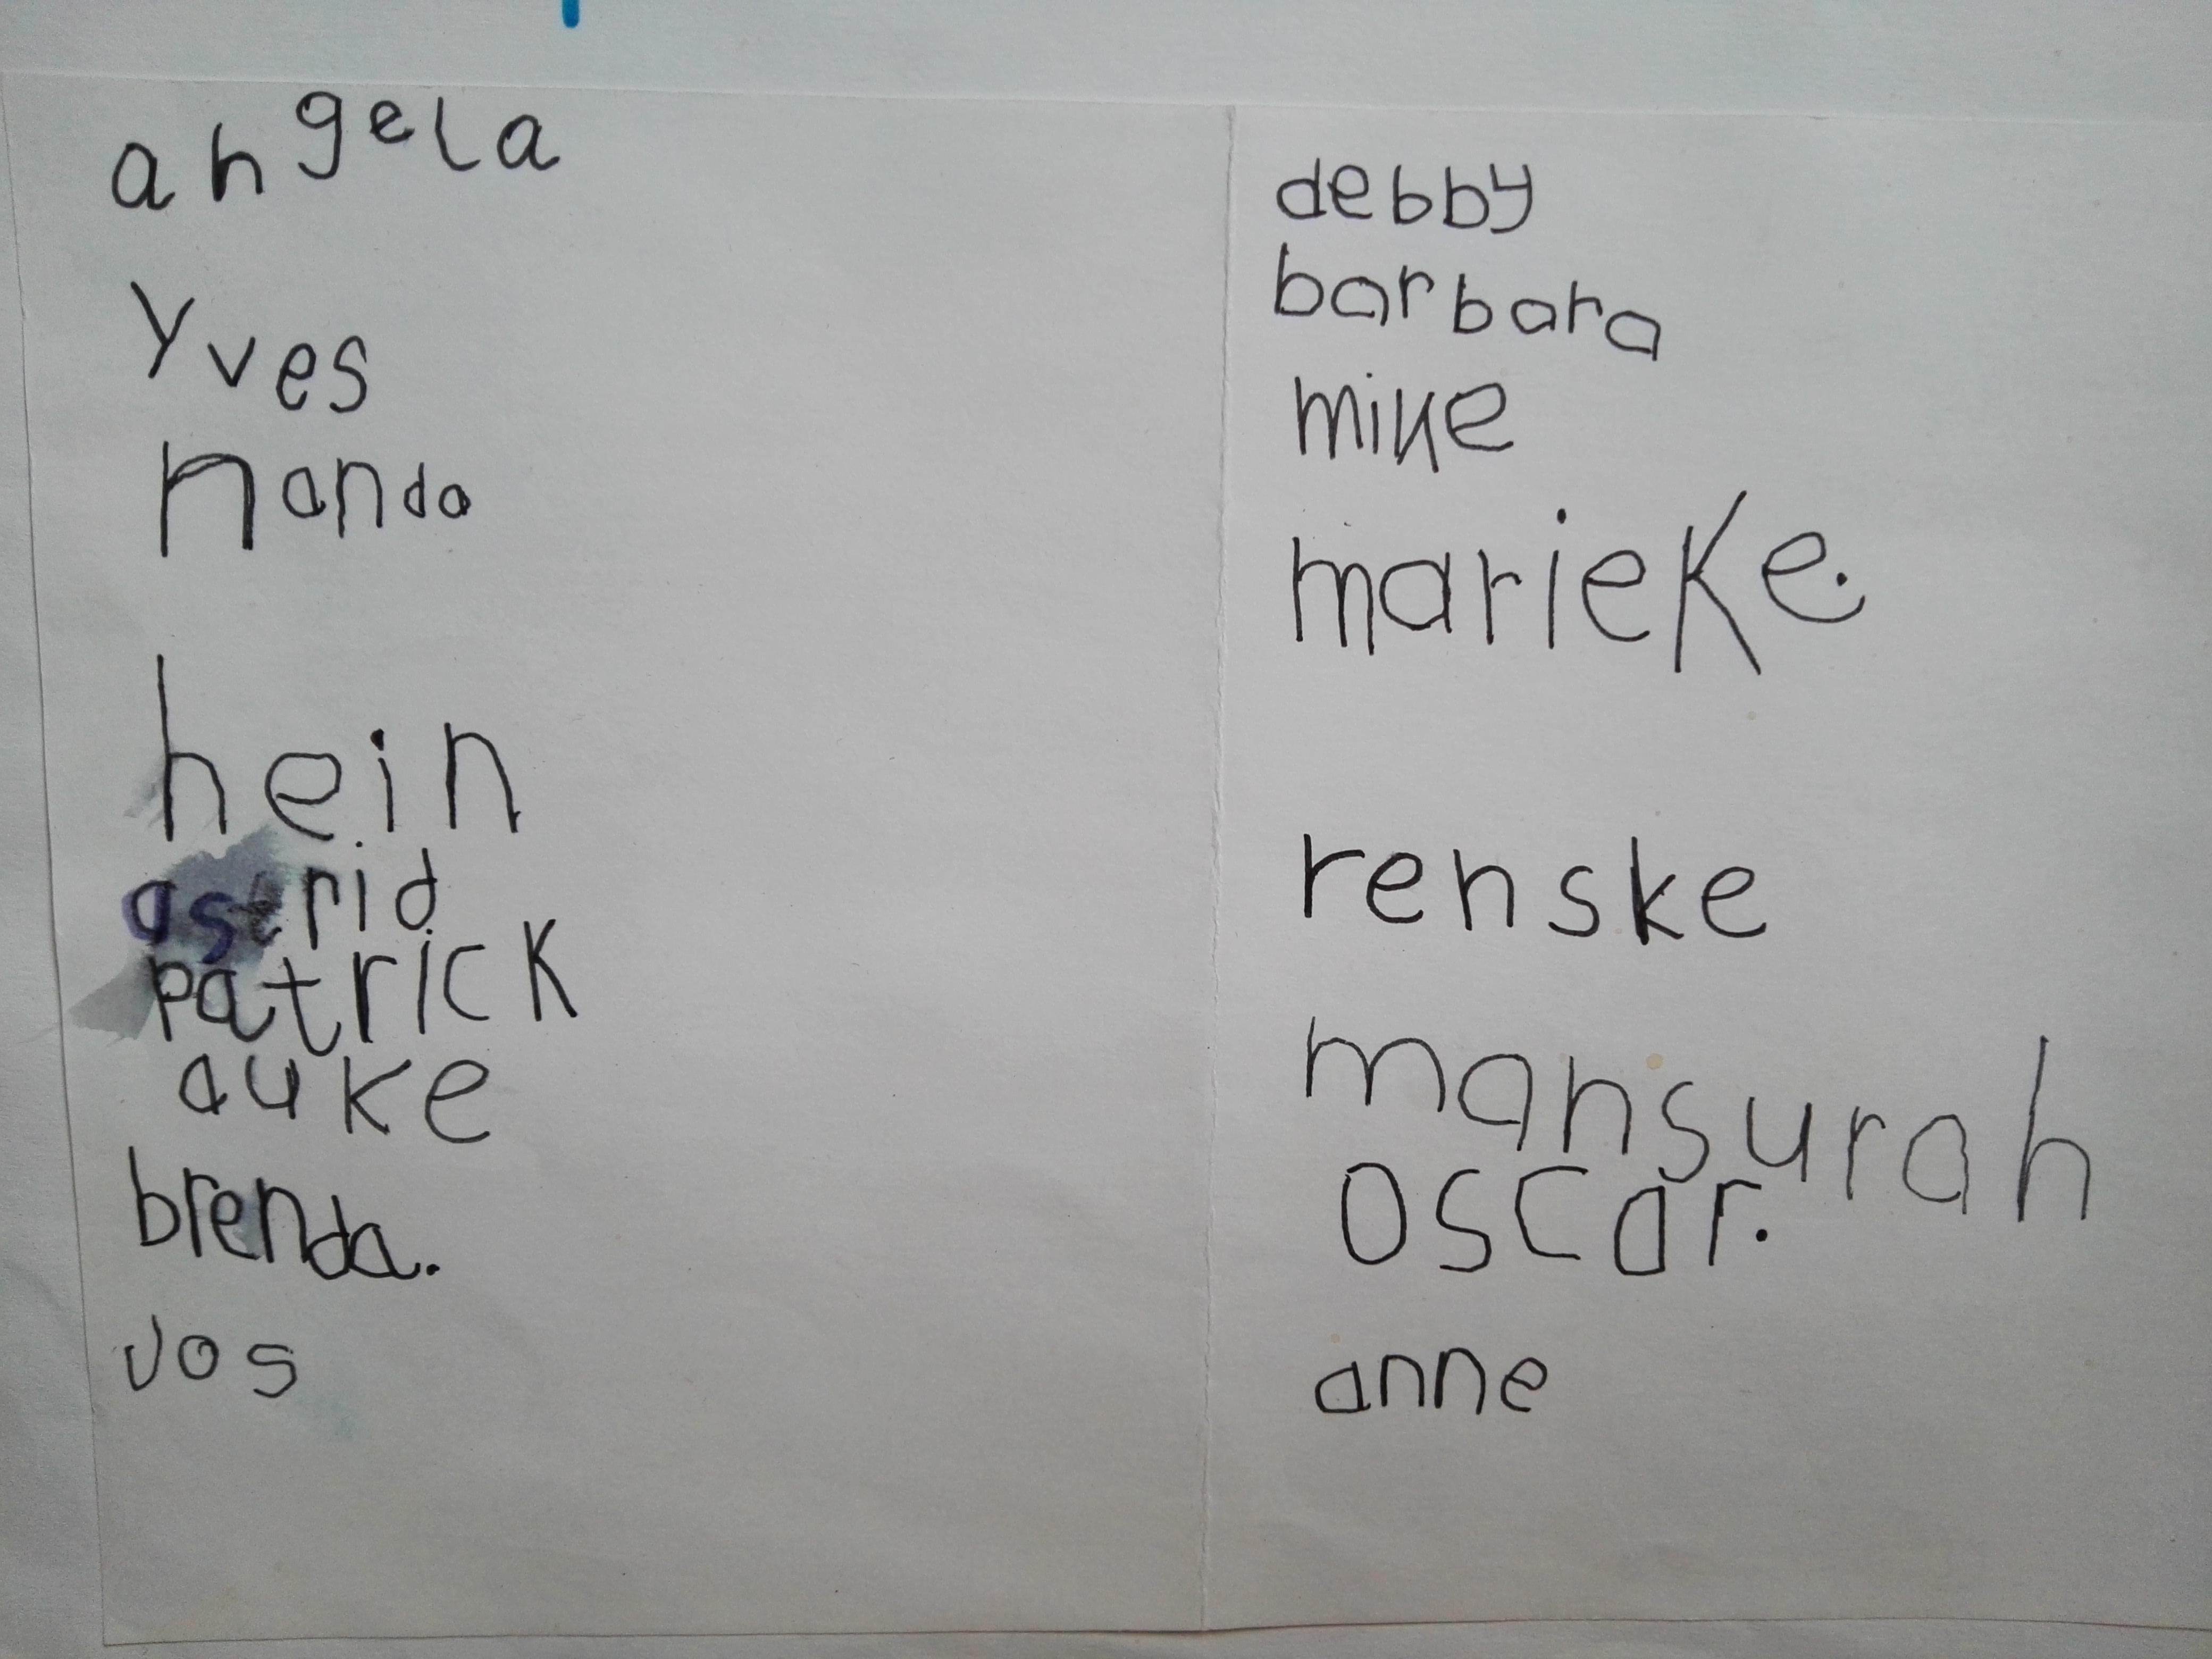 angela
Yves
nanda
hein
astrid
patrick
auke
brenda.
Jos
debby
barbara
mike
marieke.
renske
mansurah
oscar.
anne